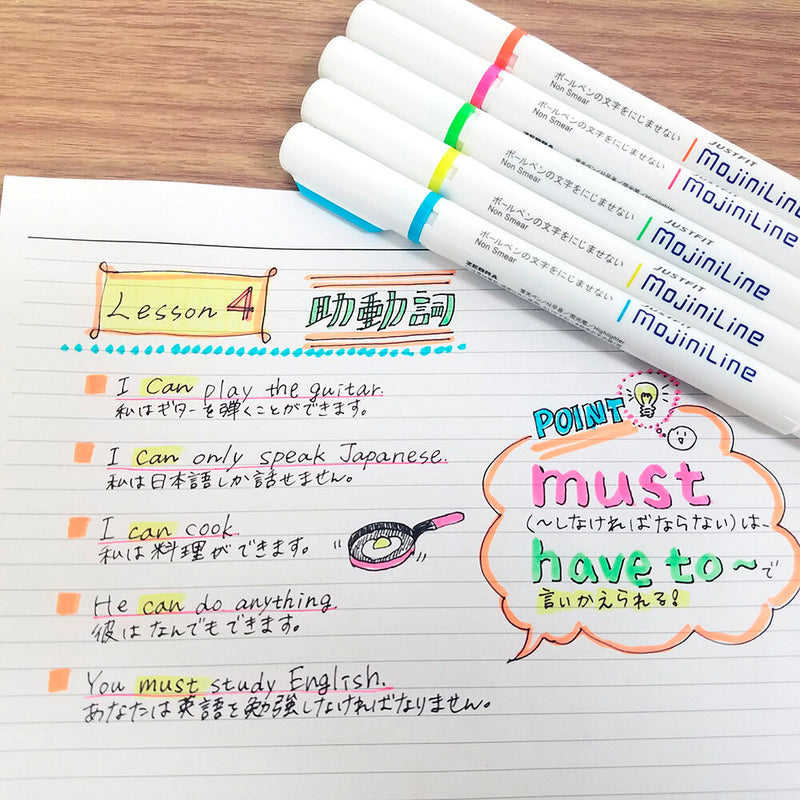 ボールペンの文字をにじませない
Non Smear
JUSTFIT
MojiniLine
ボールペンの文字をにじませない
Non Smear
ZEBRA
JUSTFIT
MojiniLine
ボールペンの文字をにじませない
Non Smear
JUSTFIT
MojiniLine
ボールペンの文字をにじませない
Non Smear
JUSTFIT
MojiniLine
ボールペンの文字をにじませない
Non Smear
ZEBRA
Highlighter
JUSTFIT
MojiniLine
Lesson 4 助動詞
I can play the guitar.
私はギターを弾くことができます。
I can only speak Japanese.
私は日本語しか話せません。
I can cook.
私は料理ができます。
He can do anything.
彼はなんでもできます。
You must study English.
あなたは英語を勉強しなければなりません。
POINT
must
(〜しなければならない)は、
have to 〜で
言いかえられる!